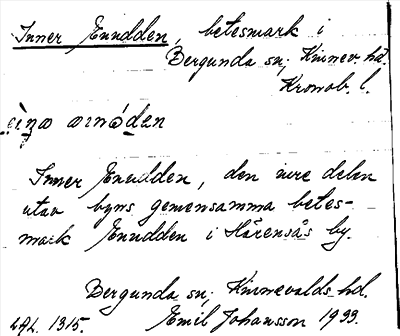 Inner Enudden, betesmark i
Bergunda sn; Kinnev. hd.
Kronob. l.
Inner Enudden, den inre delen
utav byns gemensamma betes-
mark Enudden i Härensås by.
Bergunda sn; Kinnevalds hd.
LAL. 1315. Emil Johansson 1933.